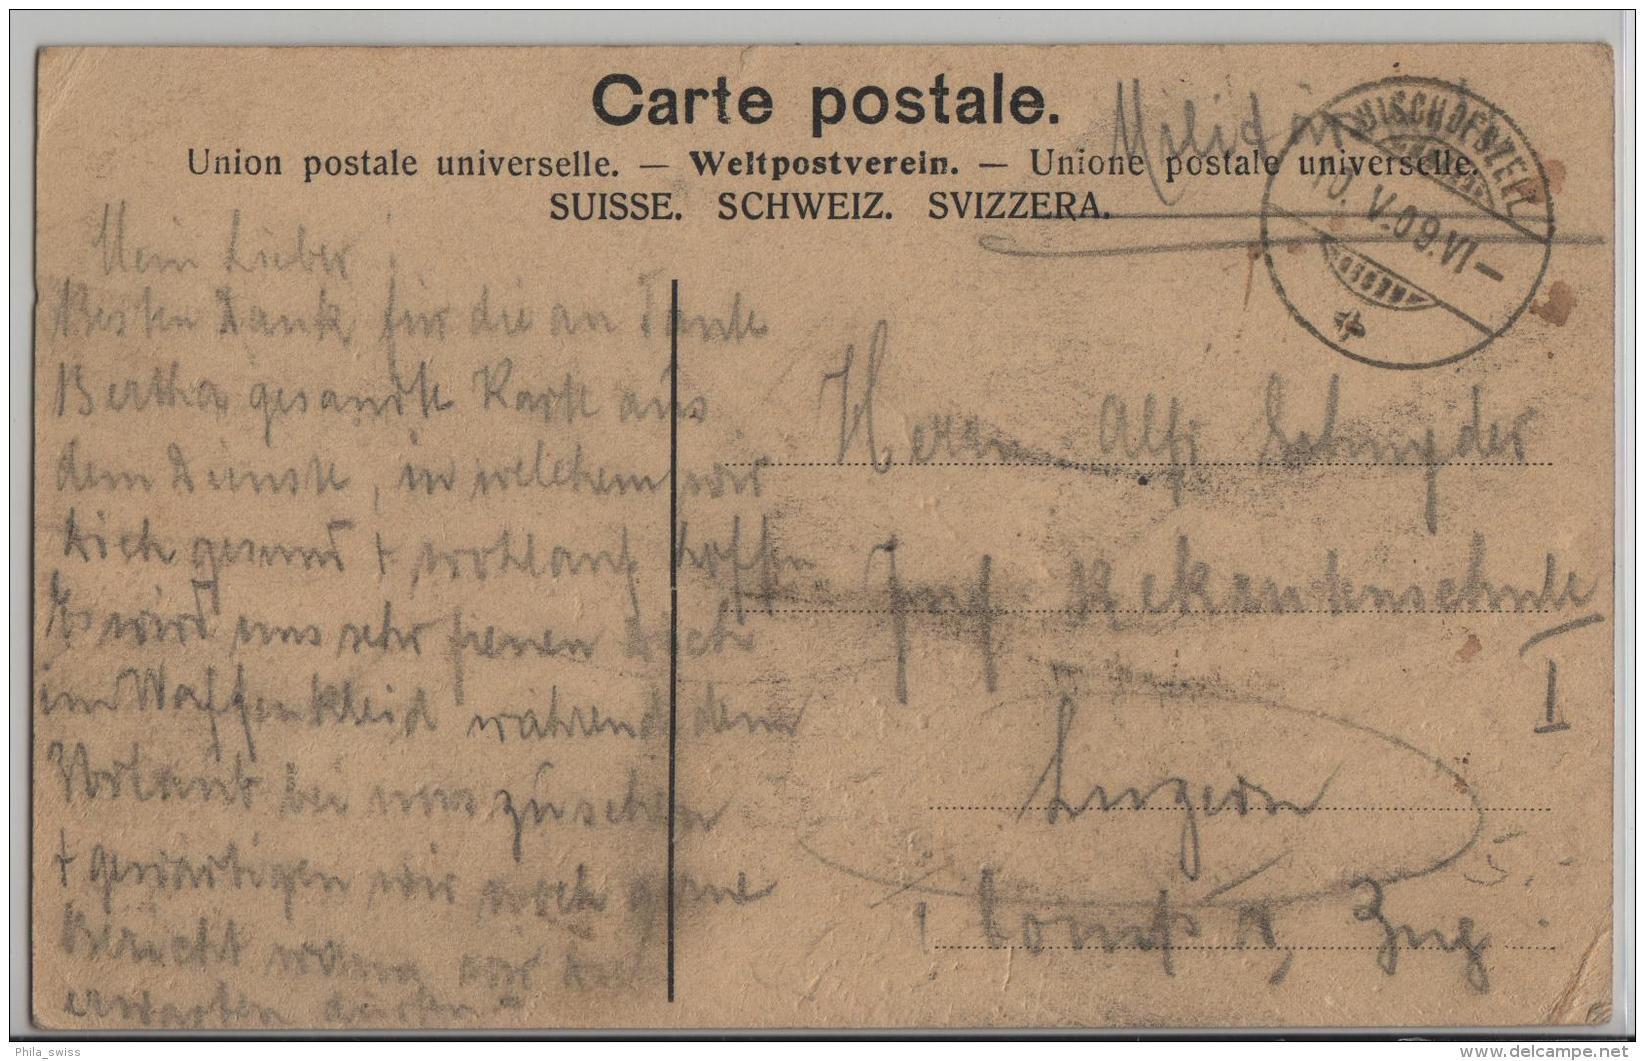 Carte postale.
Militär
Union postale universelle. — Weltpostverein. — Unione postale universelle.
SUISSE. SCHWEIZ. SVIZZERA.
BISCHOFSZELL
10. V. 09. VI –
Mein Lieber
Besten Dank für die an Tante
Bertha gesandte Karte aus
dem Dienste, in welchem wir
Dich gesund + wohlauf hoffen
Es wird uns sehr freuen Dich
im Waffenkleid während dem
Urlaub bei uns zu sehen
+ gewärtigen wir noch gerne
Bericht wann wir Dich
erwarten dürfen
Herrn Alf. Schnyder
Inf. Rekrutenschule
I
Luzern
1 Comp. , Zug
5.-
Phila_swiss
delcampe.net